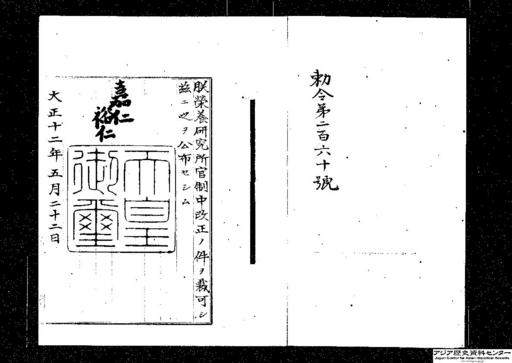 勅令第二百六十號
朕榮養研究所官制中改正ノ件ヲ裁可シ
茲ニ之ヲ公布セシム
嘉仁
裕仁
天皇
御璽
大正十二年五月二十二日
アジア歴史資料センター
Japan Center for Asian Historical Records